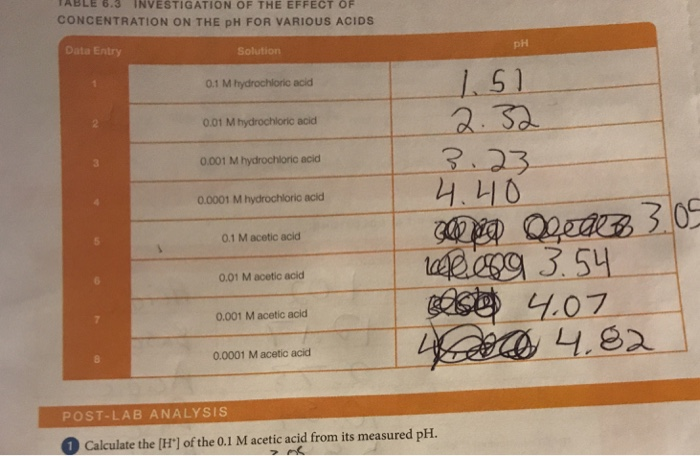 TABLE 6.3 INVESTIGATION OF THE EFFECT OF
CONCENTRATION ON THE pH FOR VARIOUS ACIDS
Data Entry Solution pH
1 0.1 M hydrochloric acid 1.51
2 0.01 M hydrochloric acid 2.32
3 0.001 M hydrochloric acid 3.23
4 0.0001 M hydrochloric acid 4.40
5 0.1 M acetic acid 3.05
6 0.01 M acetic acid 3.54
7 0.001 M acetic acid 4.07
8 0.0001 M acetic acid 4.82
POST-LAB ANALYSIS
1 Calculate the [H⁺] of the 0.1 M acetic acid from its measured pH.